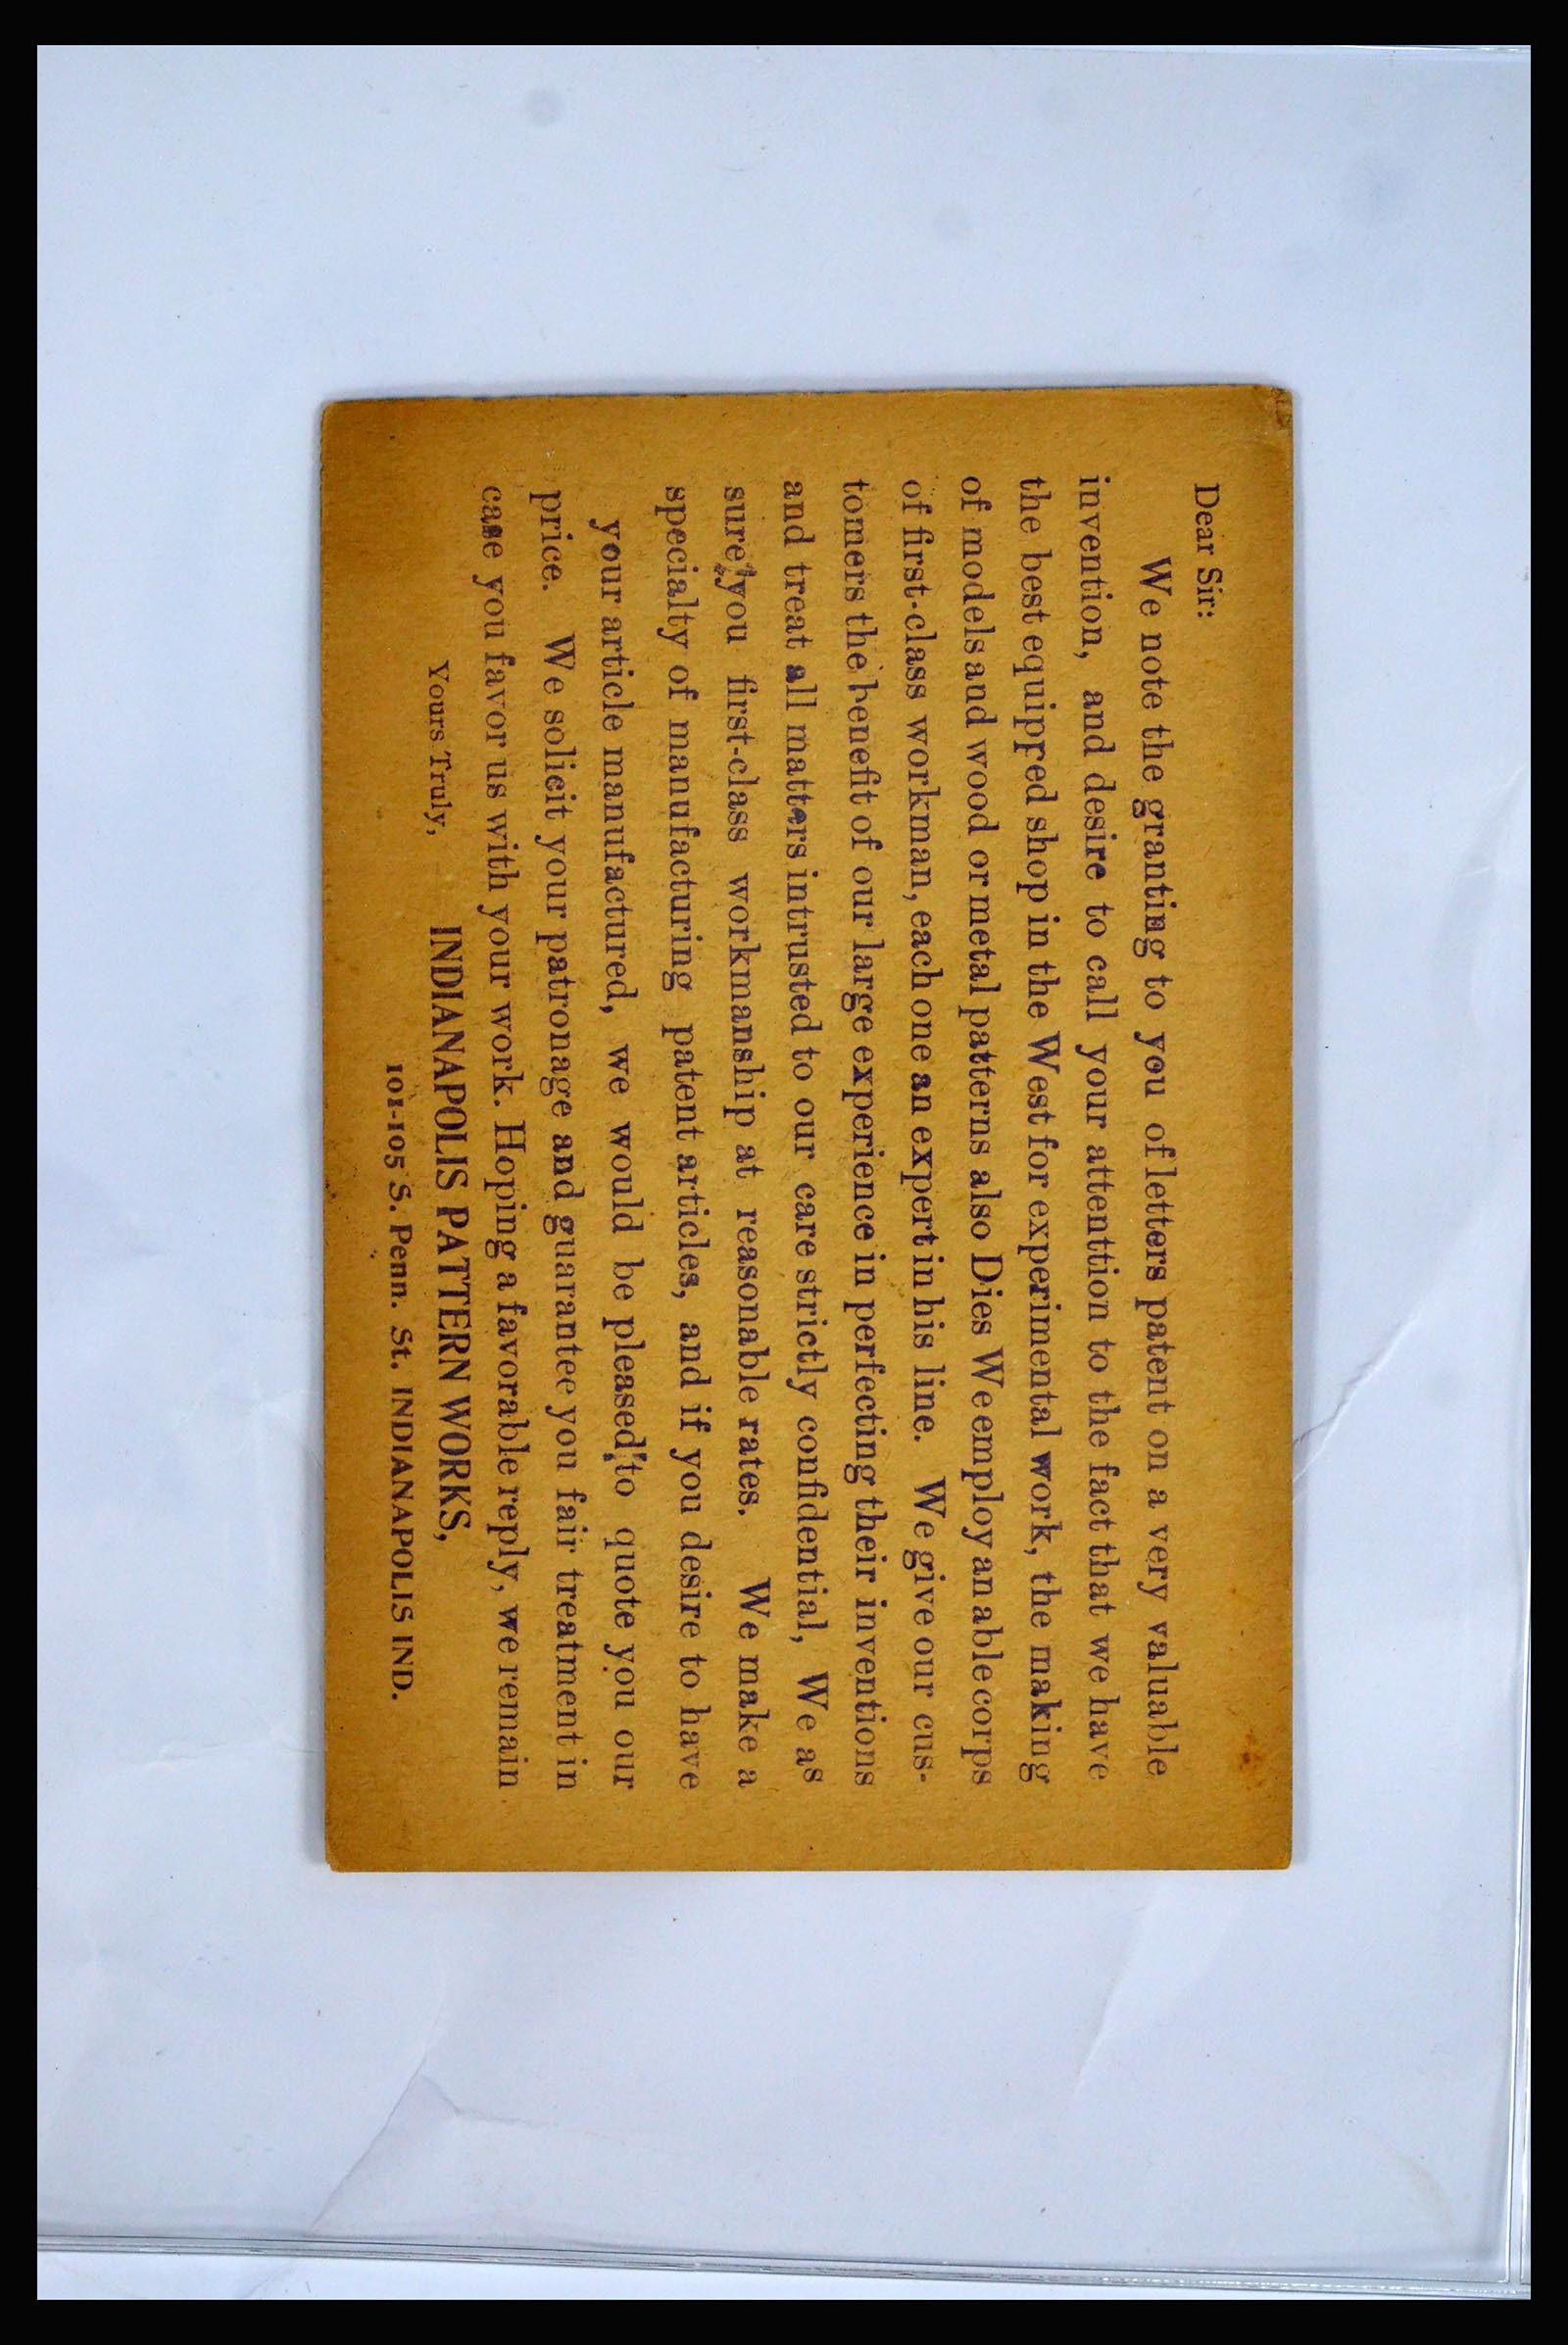 Dear Sir:
We note the granting to you of letters patent on a very valuable
invention, and desire to call your attenttion to the fact that we have
the best equipped shop in the West for experimental work, the making
of models and wood or metal patterns also Dies We employ an able corps
of first-class workman, each one an expert in his line. We give our cus-
tomers the benefit of our large experience in perfecting their inventions
and treat all matters intrusted to our care strictly confidential, We as
sure you first-class workmanship at reasonable rates. We make a
specialty of manufacturing patent articles, and if you desire to have
your article manufactured, we would be pleased to quote you our
price. We solicit your patronage and guarantee you fair treatment in
case you favor us with your work. Hoping a favorable reply, we remain
Yours Truly, INDIANAPOLIS PATTERN WORKS,
101-105 S. Penn. St. INDIANAPOLIS IND.